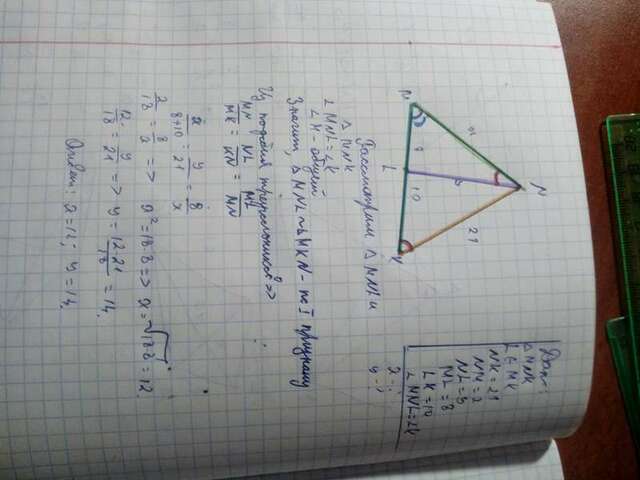 Дано:
△ MNK
L ∈ MK
NK = 21
NM = 2
NL = y
NL = 8
LK = 10
∠ MNL = ∠K
2 -
y -
M
N
K
L
a
y
10
21
Рассмотрим △ MNL и
△ MNK
∠ MNL = ∠K
∠ M - общий
Значит, △ MNL ~ △ MKN - по I признаку
Из подобия треугольников =>
MN/MK = NL/KN = ML/MN
a/8+10 = y/21 = 8/x
2/18 = 8/2 => a² = 18·8 => x = √18·8 = 12.
12/18 = y/21 => y = 12·21/18 = 14.
Ответ: a = 12; y = 14.